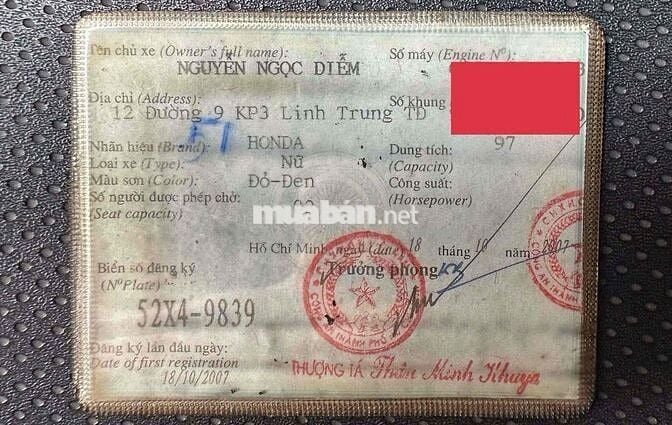 Tên chủ xe (Owner's full name):
Số máy (Engine Nº):
NGUYỄN NGỌC DIỄM
Địa chỉ (Address):
Số khung
12 Đường 9 KP3 Linh Trung TĐ
Nhãn hiệu (Brand):
HONDA
Dung tích:
97
57
(Capacity)
Loại xe (Type):
Nữ
Màu sơn (Color):
Đỏ-Đen
Công suất:
(Horsepower)
Số người được phép chở:
02
(Seat capacity)
muaban.net
Hồ Chí Minh, ngày (date) 18 tháng 10 năm 2007
Trưởng phòng
Biển số đăng ký
(Nº Plate)
52X4-9839
Đăng ký lần đầu ngày:
Date of first registration
18/10/2007
THƯỢNG TÁ